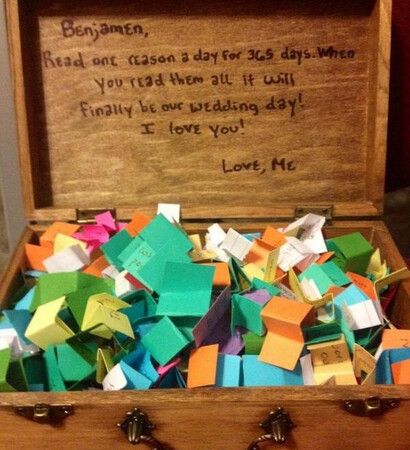 Benjamen,
Read one reason a day for 365 days. When
you read them all it will
finally be our wedding day!
I love you!
Love, Me